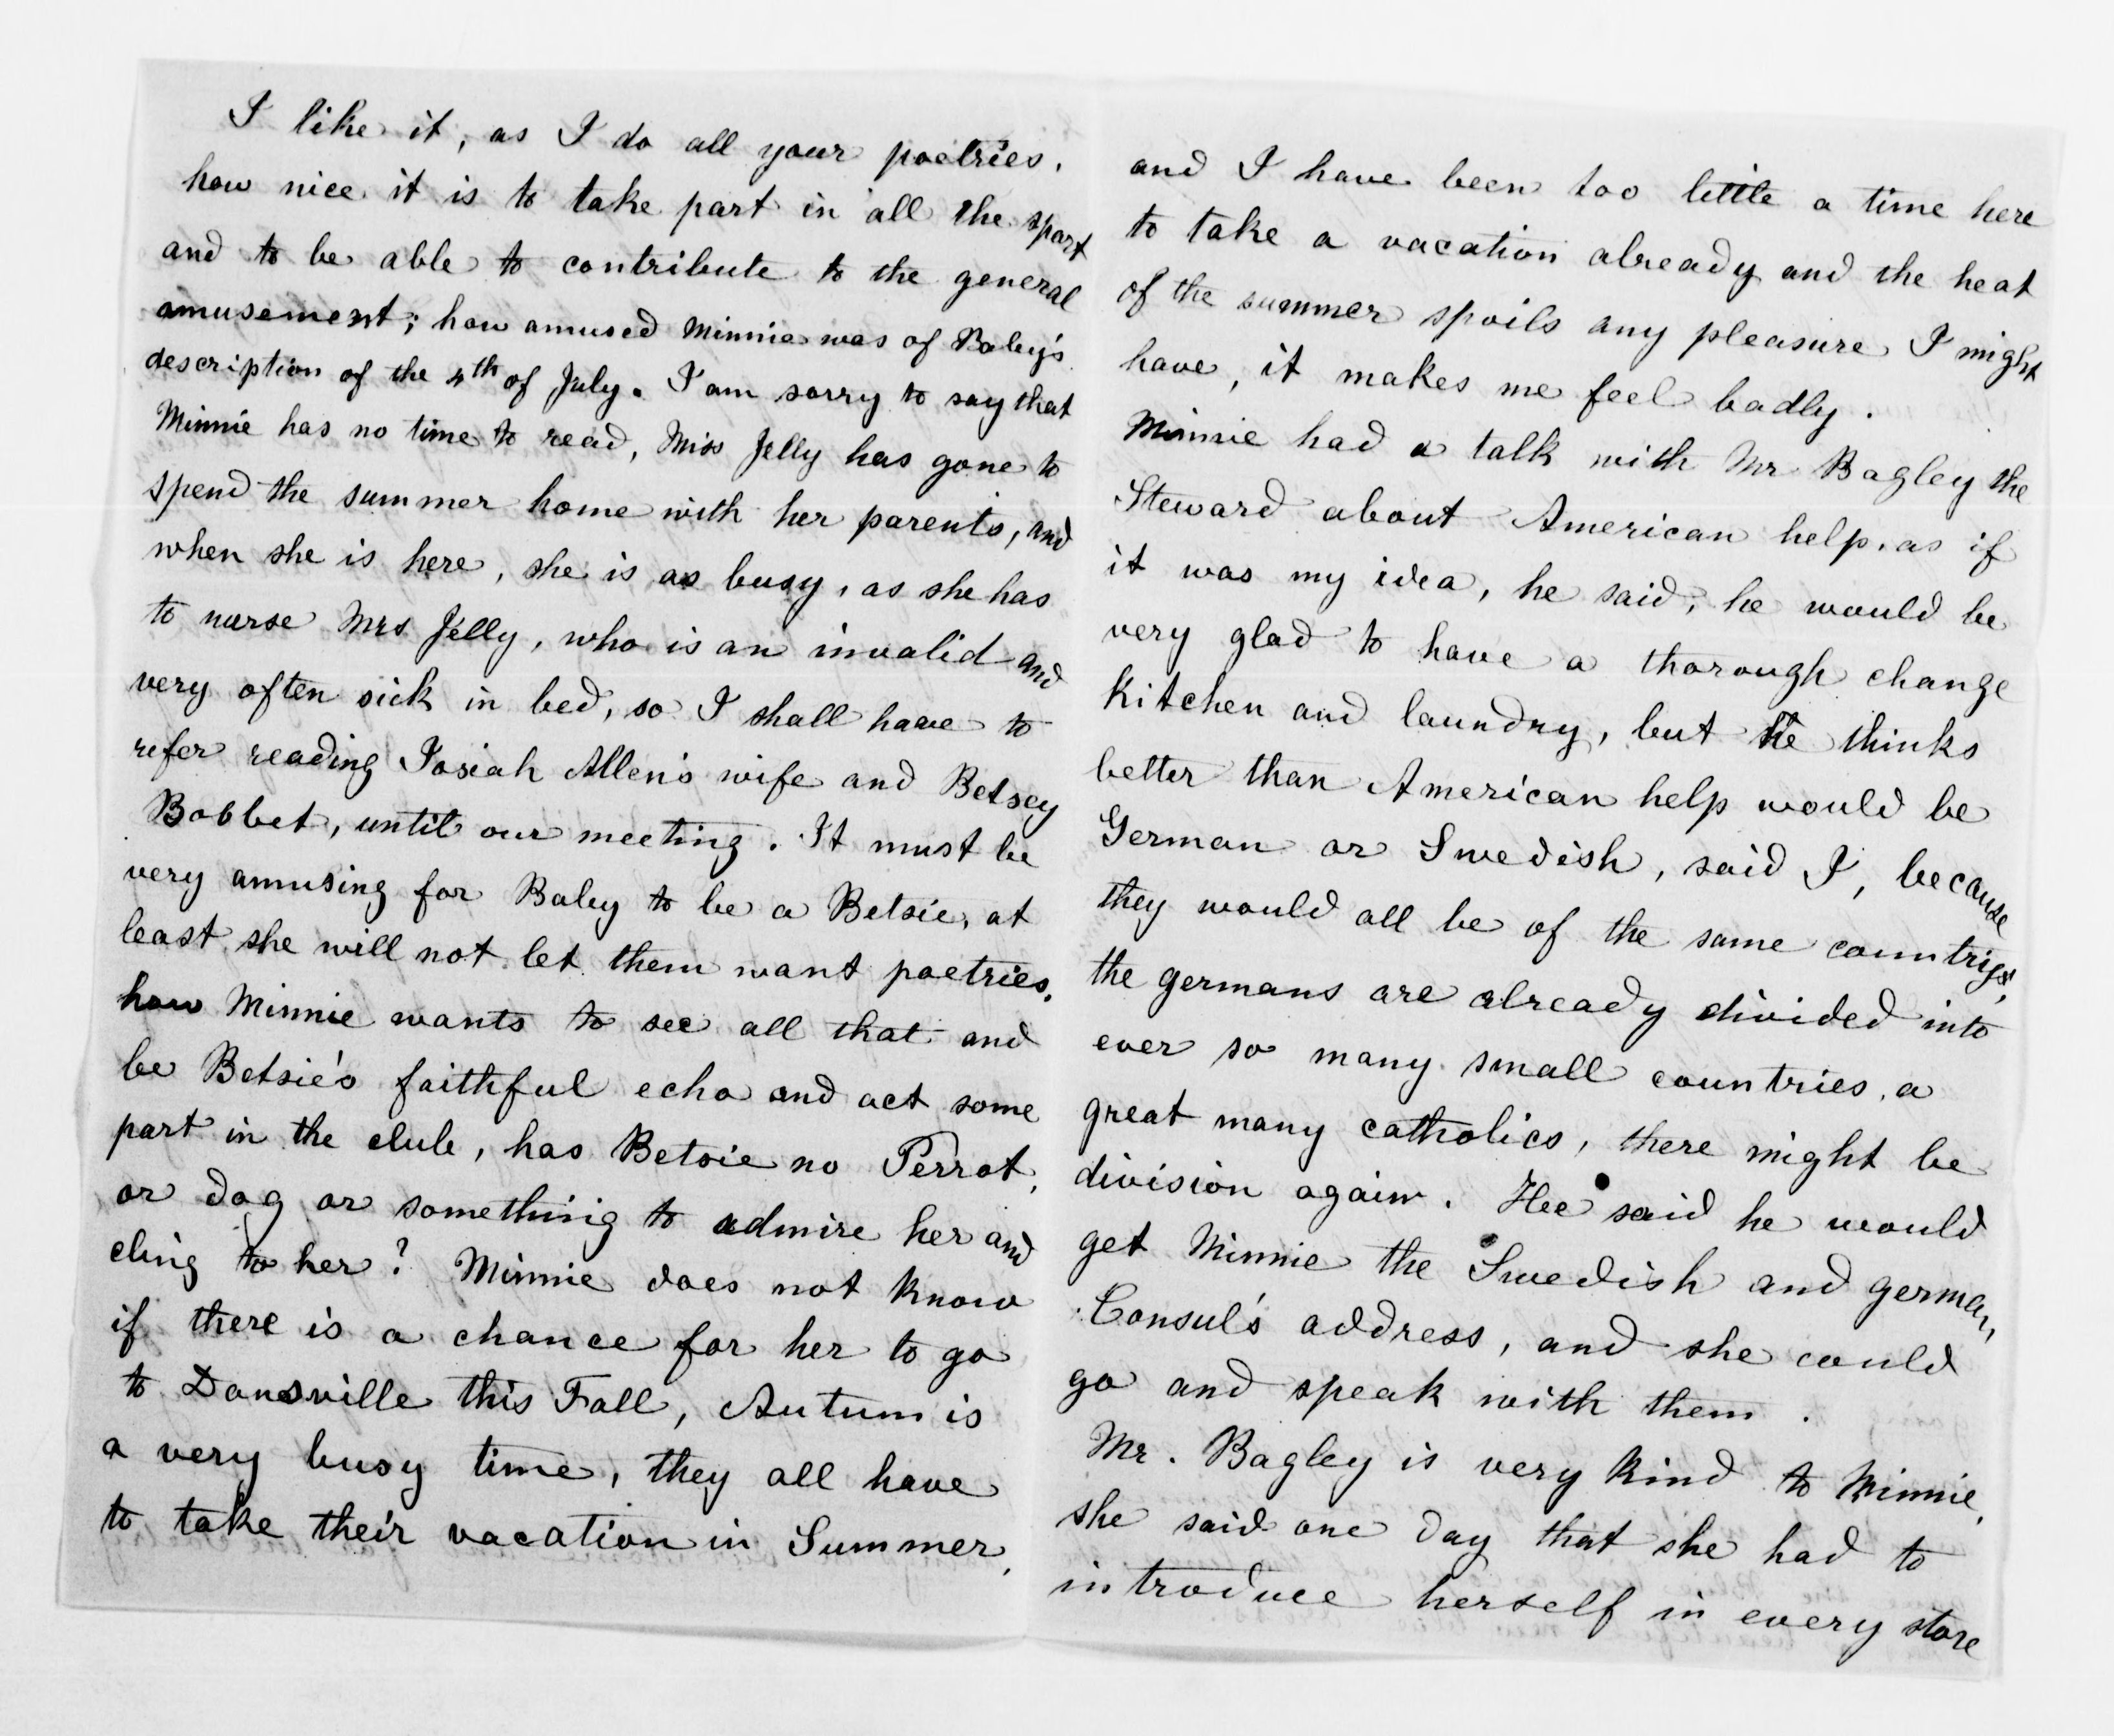 I like it, as I do all your poetries.
how nice it is to take part in all the sport
and to be able to contribute to the general
amusement; how amused Minnie was of Baby's
description of the 4th of July. I am sorry to say that
Minnie has no time to read, Miss Jelly has gone to
spend the summer home with her parents, and
when she is here, she is as busy, as she has
to nurse Mrs Jelly, who is an invalid and
very often sick in bed, so I shall have to
refer reading Josiah Allen's wife and Betsey
Bobbet, until our meeting. It must be
very amusing for Baby to be a Betsie, at
least she will not let them want poetries.
how Minnie wants to see all that and
be Betsie's faithful echo and act some
part in the club, has Betsie no Perrot,
or dog or something to admire her and
cling to her? Minnie does not know
if there is a chance for her to go
to Dansville this Fall, Autum is
a very busy time, they all have
to take their vacation in Summer,
and I have been too little a time here
to take a vacation already and the heat
of the summer spoils any pleasure I might
have, it makes me feel badly.
Minnie had a talk with Mr Bagley the
Steward about American help, as if
it was my idea, he said, he would be
very glad to have a thorough change
Kitchen and laundry, but he thinks
better than American help would be
German or Swedish, said I, because
they would all be of the same country,
the germans are already divided into
ever so many small countries, a
great many catholics, there might be
division again. Hee said he would
get Minnie the Swedish and german,
Consul's address, and she could
go and speak with them.
Mr. Bagley is very kind to Minnie,
she said one day that she had to
introduce herself in every store